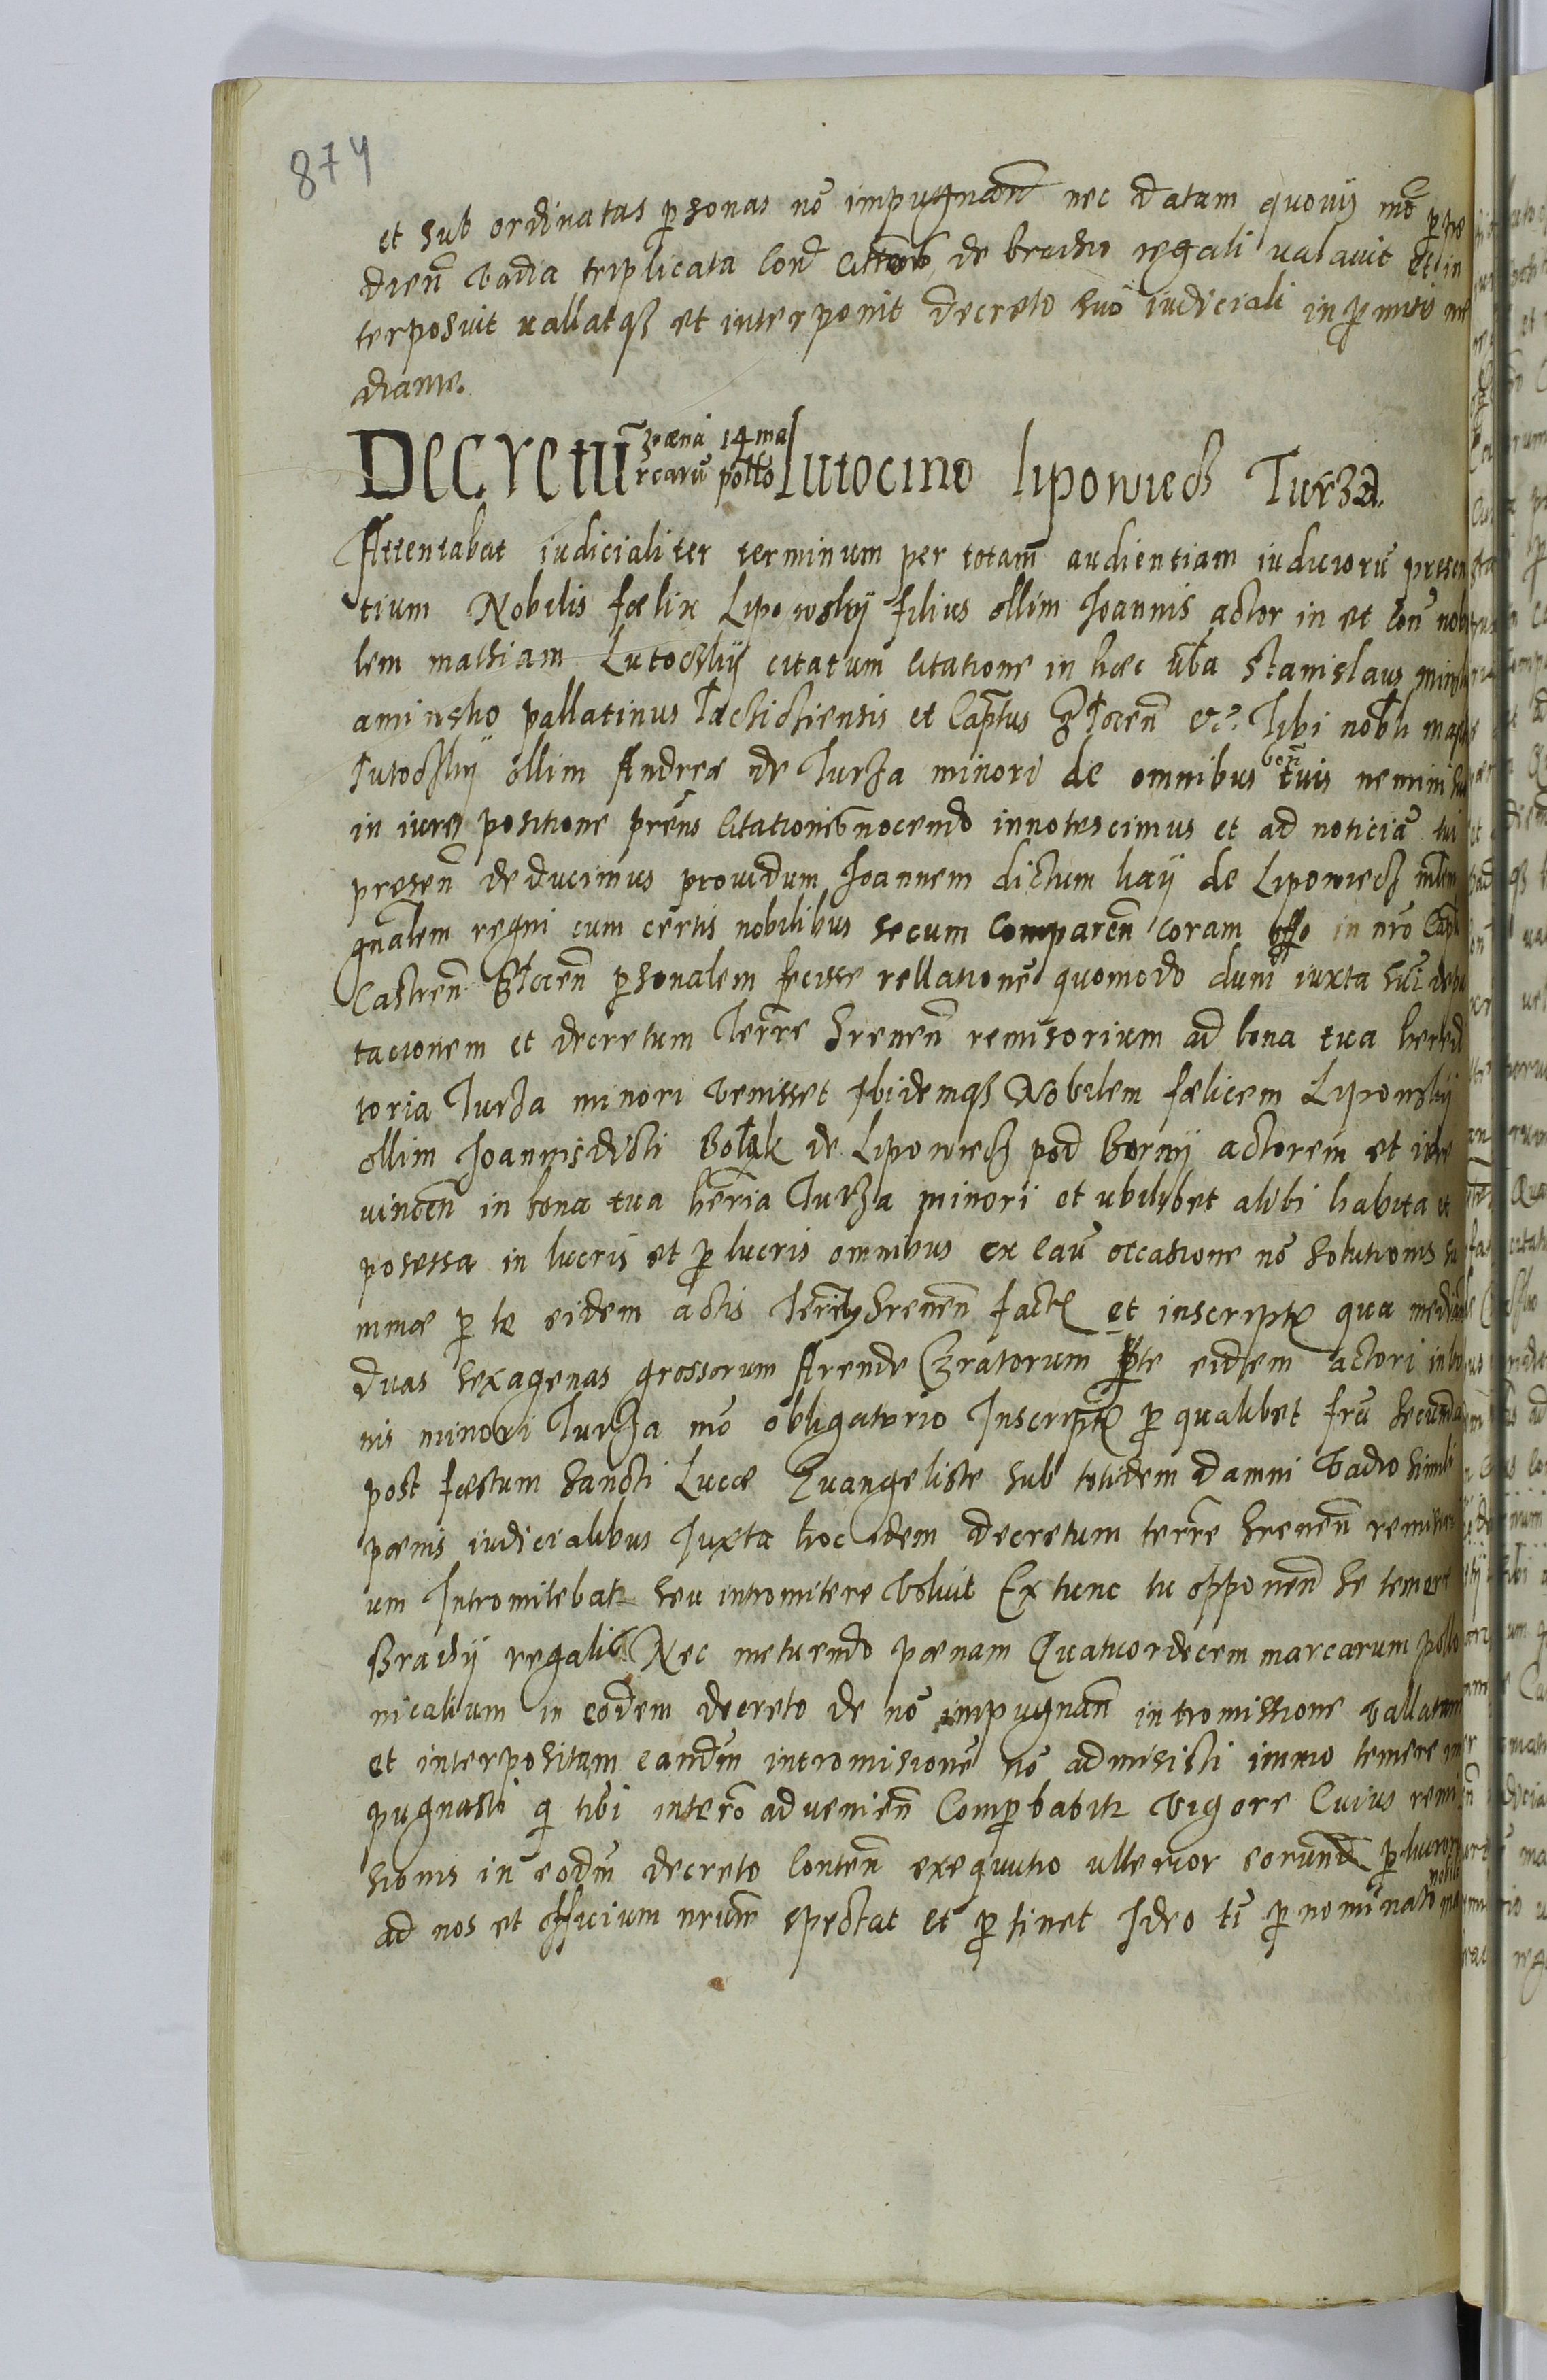 874
et sub ordinatas psonas nō impugnand nec datam quovis mō
dien vadia triplicata Cond Cittatō de brachio regali valavit et in
terposuit vallatqz et interponit decreto suo iudiciali in pmiss me
diante.
Decretū pæna 14 ma rcarū pollo Lutocino lipowiecz Turza
Attentabat iudicialiter terminum per totam audientiam iudiciorū presen
tium Nobilis fælix Lipowskij filius ollim Joannis actor in et Con nobi
lem mathiam Lutoczkij citatum Citatione in hæc vba Stanislaus minsky
aminsko pallatinus et Captus etc. Tibi nobli
Lutoczkij ollim Andreæ de Turza minori de omnibus bon tuis
in iure positione prēns Citationis nocendo innotescimus et ad noticiā tui
presen deducimus providum Joannem dictum kaij de Lipowiecz
gnalem regni cum certis nobilibus secum Comparen Coram offo in nro Capt
Castren psonalem fecisse rellationē quomodo dum iuxta sui depu
tacionem et decretum Terre Srenen remisorium ad bona tua heredi
toria Turza minori venisset Ibidemqz Nobilem fælicem Lipowskij
ollim Joannis dicti Bolak de Lipowiecz pod Bornij actorem et iure
vincen in bona tua heria Turza minori et ubilibet alibi habita et
posessa in lucris et p lucris omnibus ex Cau occasione nō solutionis su
mmæ p te eidem actis Terribz Srenen fact et inscript qua median
duas sexagenas grossorum Arende Czratorum p te eidem actori in bo
nis minori Turza mō obligatorio Inscript p qualibet fru secunda
post fæstum Sancti Lucæ Evangeliste sub totidem damni vadio simili
pænis iudicialibus Juxta hoc idem decretum terre Srenen remissori
um Intromitebatr seu intromitere voluit Ex tunc tu opponen se temere
Brachij regalis Nec metuendo pænam Quatuordecem marcarum pollo
nicalium in eodem decreto de nō impugnan intromissione vallatam
et interpositam eandm intromisionē nō admisisti immo temere im
pugnasti q tibi intero advenien Comp babitr vigore Cuius remi
sionis in eodm decreto Conten exequutio ulterior eorund p lucrorum
ad nos et officium nrum spectat et ptinet Ideo tu p nominato